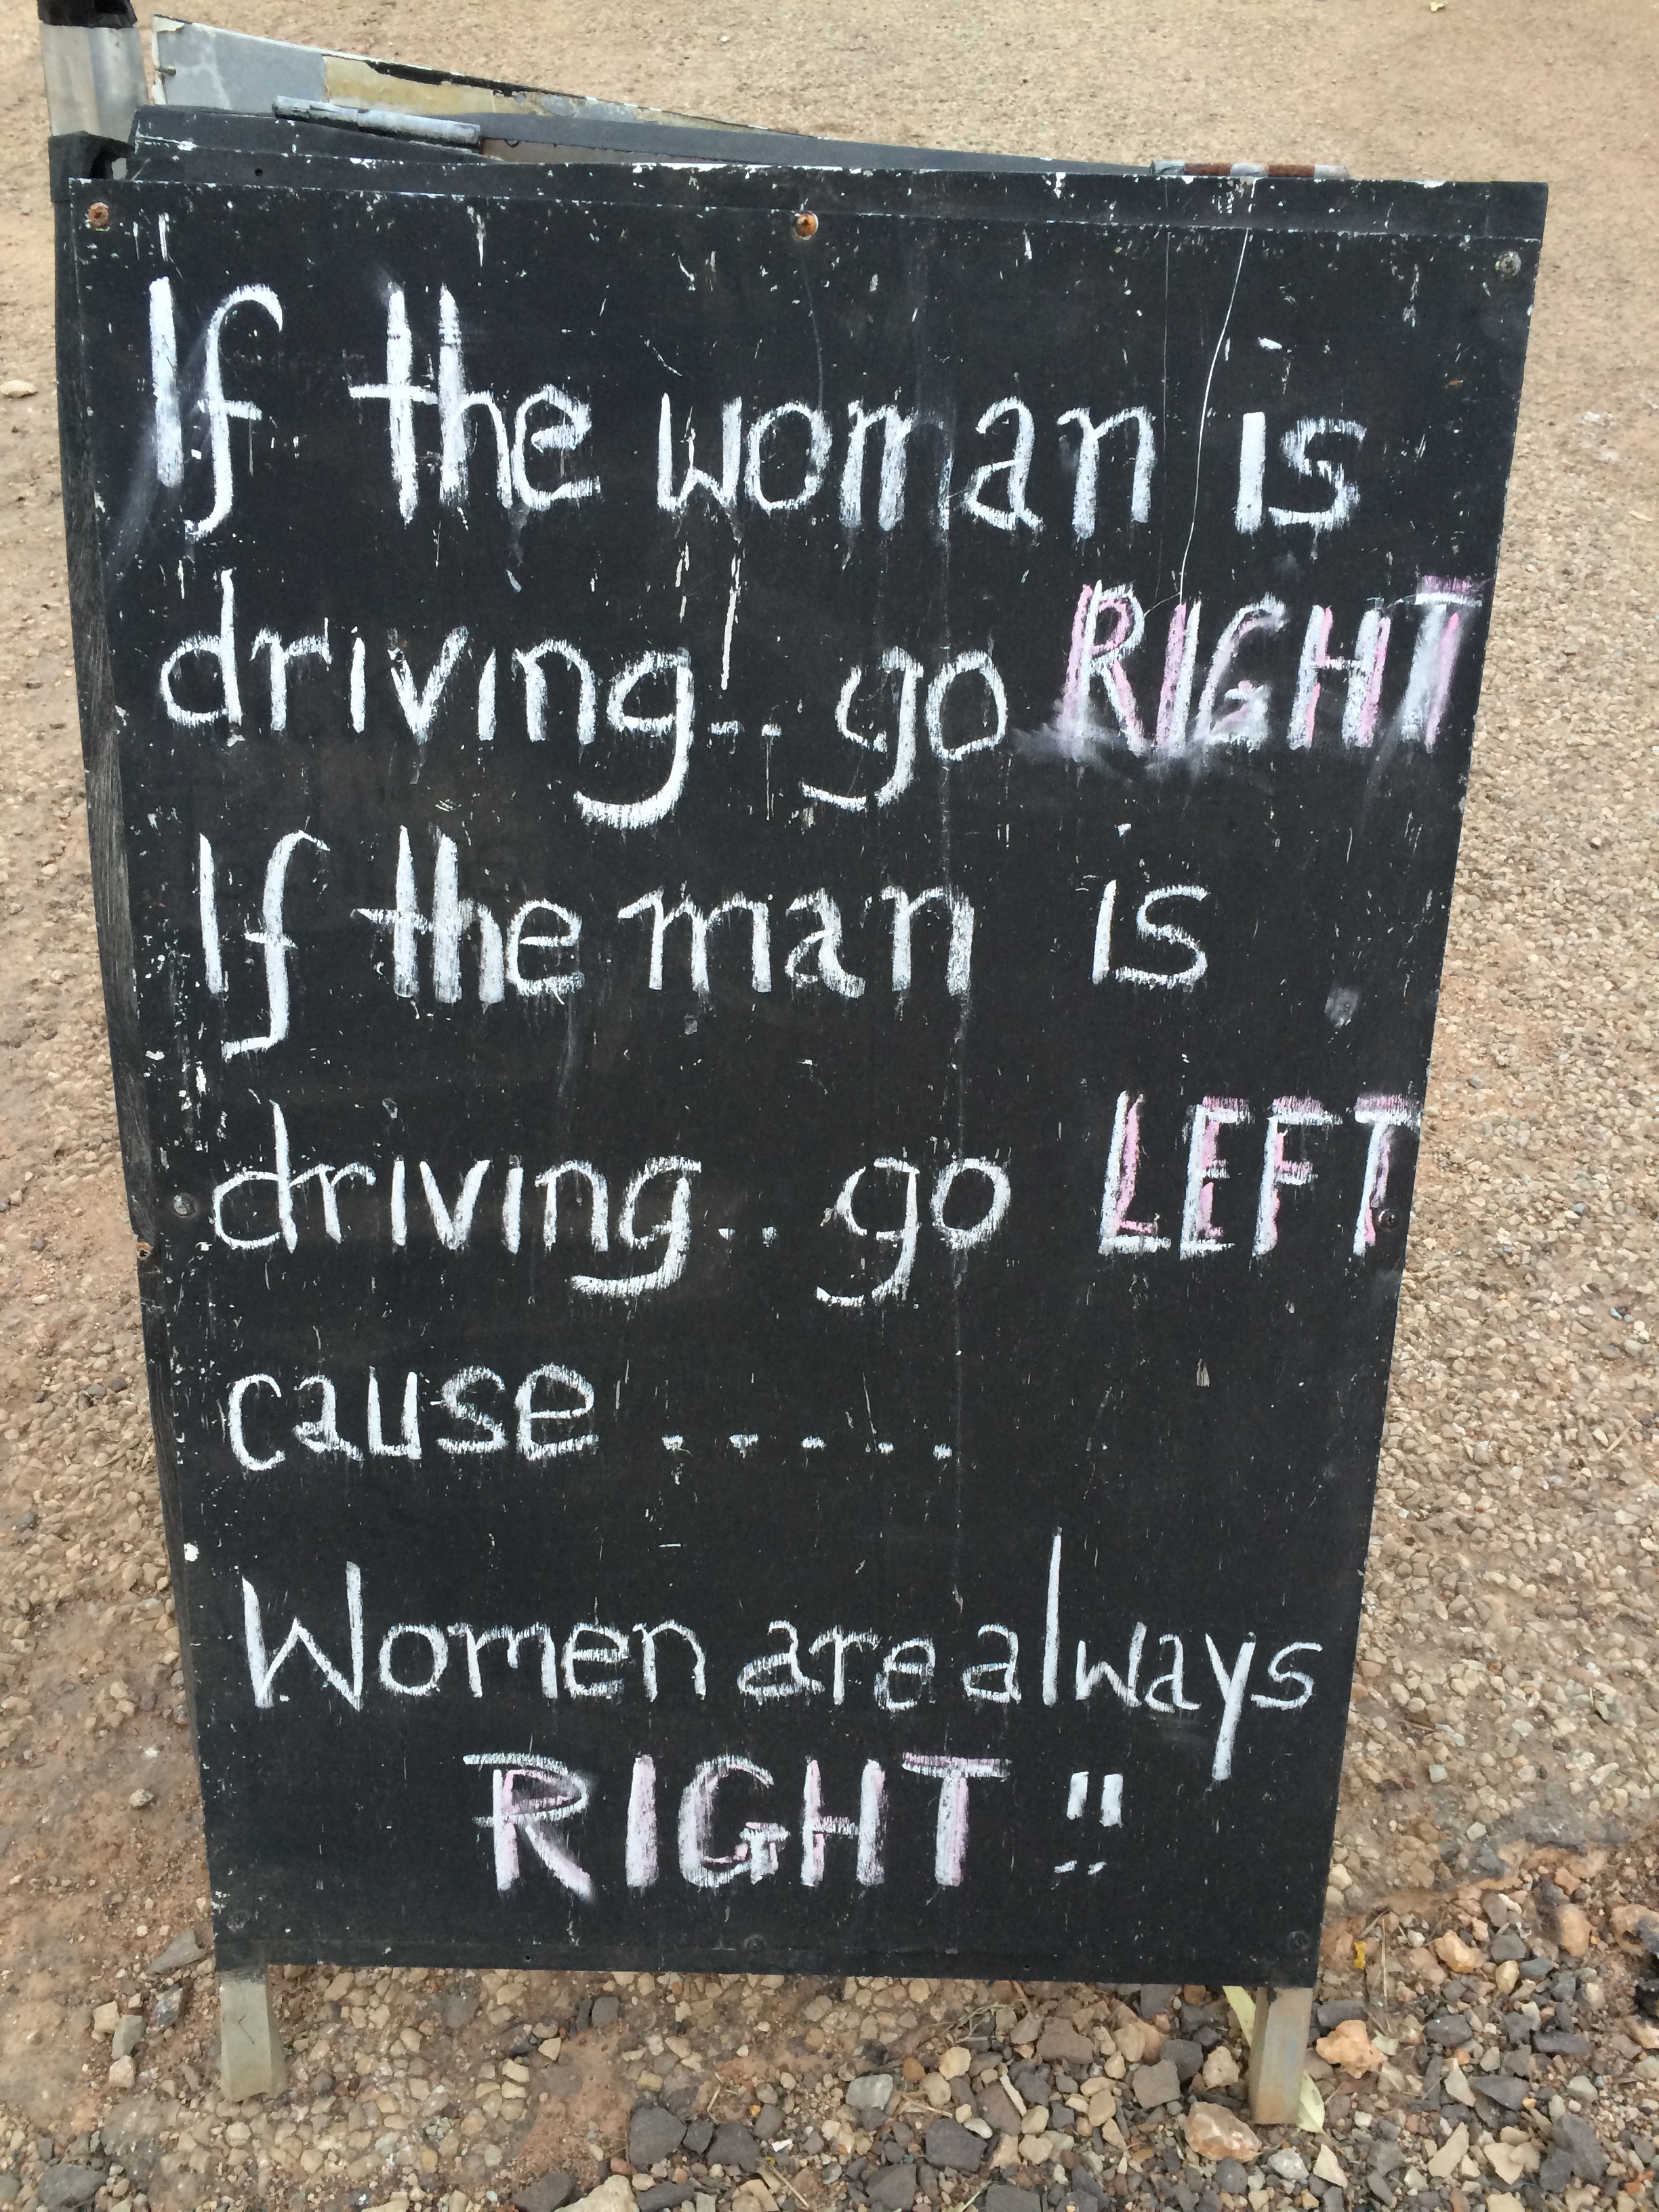 If the woman is
driving.. go RIGHT
If the man is
driving.. go LEFT
cause .....
Women are always
RIGHT !!